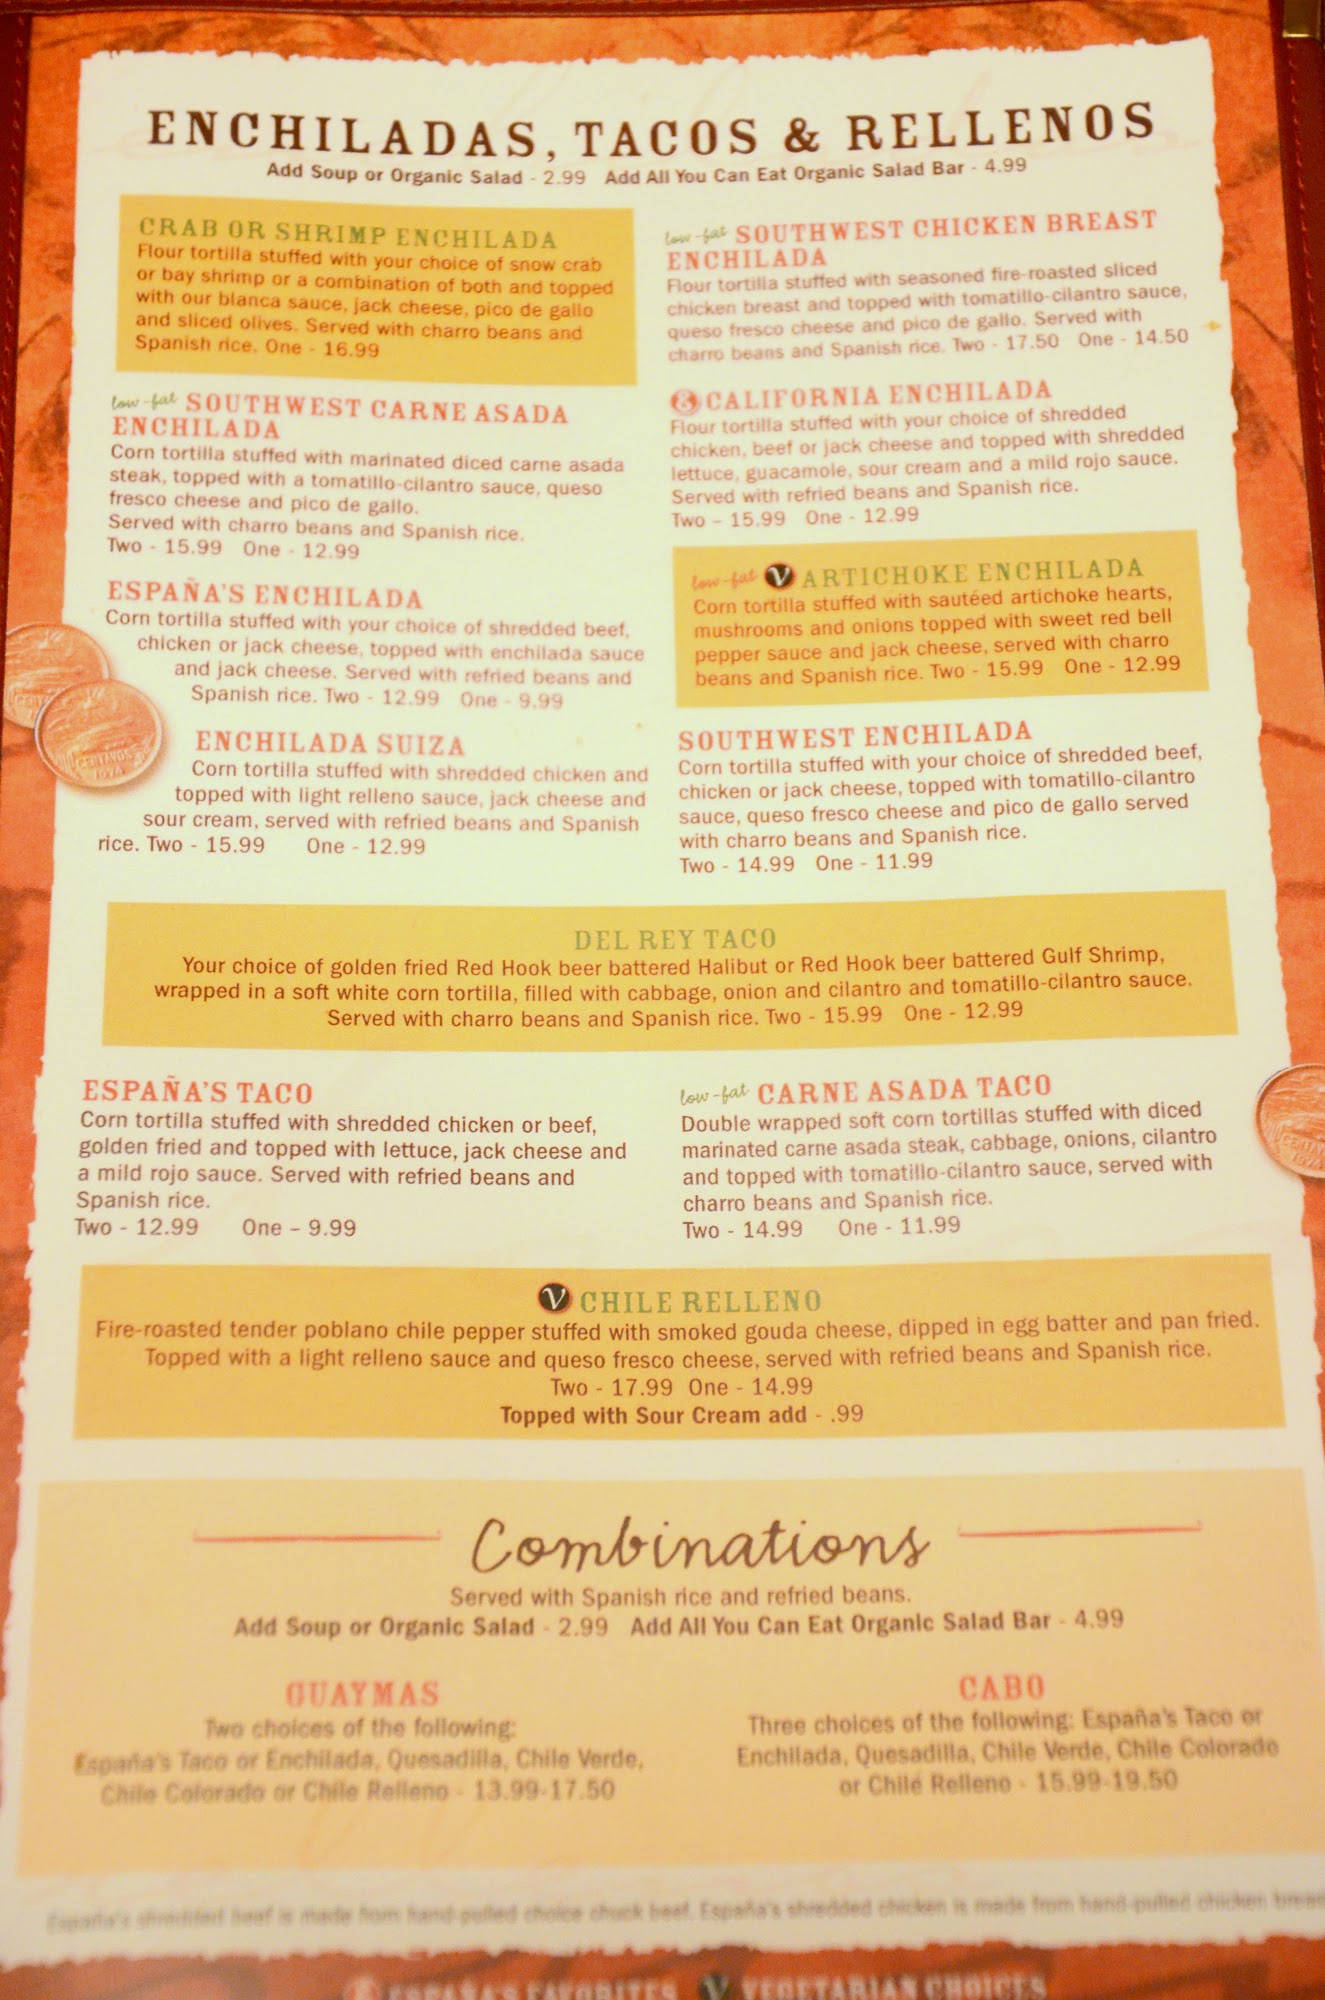 ENCHILADAS, TACOS & RELLENOS
Add Soup or Organic Salad - 2.99 Add All You Can Eat Organic Salad Bar - 4.99
CRAB OR SHRIMP ENCHILADA
Flour tortilla stuffed with your choice of snow crab
or bay shrimp or a combination of both and topped
with our blanca sauce, jack cheese, pico de gallo
and sliced olives. Served with charro beans and
Spanish rice. One - 16.99
low-fat SOUTHWEST CARNE ASADA
ENCHILADA
Corn tortilla stuffed with marinated diced carne asada
steak, topped with a tomatillo-cilantro sauce, queso
fresco cheese and pico de gallo.
Served with charro beans and Spanish rice.
Two - 15.99 One - 12.99
ESPAÑA'S ENCHILADA
Corn tortilla stuffed with your choice of shredded beef,
chicken or jack cheese, topped with enchilada sauce
and jack cheese. Served with refried beans and
Spanish rice. Two - 12.99 One - 9.99
ENCHILADA SUIZA
Corn tortilla stuffed with shredded chicken and
topped with light relleno sauce, jack cheese and
sour cream, served with refried beans and Spanish
rice. Two - 15.99 One - 12.99
low-fat SOUTHWEST CHICKEN BREAST
ENCHILADA
Flour tortilla stuffed with seasoned fire-roasted sliced
chicken breast and topped with tomatillo-cilantro sauce,
queso fresco cheese and pico de gallo. Served with
charro beans and Spanish rice. Two - 17.50 One - 14.50
CALIFORNIA ENCHILADA
Flour tortilla stuffed with your choice of shredded
chicken, beef or jack cheese and topped with shredded
lettuce, guacamole, sour cream and a mild rojo sauce.
Served with refried beans and Spanish rice.
Two - 15.99 One - 12.99
low-fat V ARTICHOKE ENCHILADA
Corn tortilla stuffed with sautéed artichoke hearts,
mushrooms and onions topped with sweet red bell
pepper sauce and jack cheese, served with charro
beans and Spanish rice. Two - 15.99 One - 12.99
SOUTHWEST ENCHILADA
Corn tortilla stuffed with your choice of shredded beef,
chicken or jack cheese, topped with tomatillo-cilantro
sauce, queso fresco cheese and pico de gallo served
with charro beans and Spanish rice.
Two - 14.99 One - 11.99
DEL REY TACO
Your choice of golden fried Red Hook beer battered Halibut or Red Hook beer battered Gulf Shrimp,
wrapped in a soft white corn tortilla, filled with cabbage, onion and cilantro and tomatillo-cilantro sauce.
Served with charro beans and Spanish rice. Two - 15.99 One - 12.99
ESPAÑA'S TACO
Corn tortilla stuffed with shredded chicken or beef,
golden fried and topped with lettuce, jack cheese and
a mild rojo sauce. Served with refried beans and
Spanish rice.
Two - 12.99 One – 9.99
low-fat CARNE ASADA TACO
Double wrapped soft corn tortillas stuffed with diced
marinated carne asada steak, cabbage, onions, cilantro
and topped with tomatillo-cilantro sauce, served with
charro beans and Spanish rice.
Two - 14.99 One - 11.99
V CHILE RELLENO
Fire-roasted tender poblano chile pepper stuffed with smoked gouda cheese, dipped in egg batter and pan fried.
Topped with a light relleno sauce and queso fresco cheese, served with refried beans and Spanish rice.
Two - 17.99 One - 14.99
Topped with Sour Cream add - .99
Combinations
Served with Spanish rice and refried beans.
Add Soup or Organic Salad - 2.99 Add All You Can Eat Organic Salad Bar - 4.99
GUAYMAS
Two choices of the following:
España's Taco or Enchilada, Quesadilla, Chile Verde,
Chile Colorado or Chile Relleno - 13.99-17.50
CABO
Three choices of the following: España's Taco or
Enchilada, Quesadilla, Chile Verde, Chile Colorado
or Chile Relleno - 15.99-19.50
España's shredded beef is made from hand-pulled choice chuck beef. España's shredded chicken is made from hand-pulled chicken
ESPAÑA'S FAVORITES V VEGETARIAN CHOICES